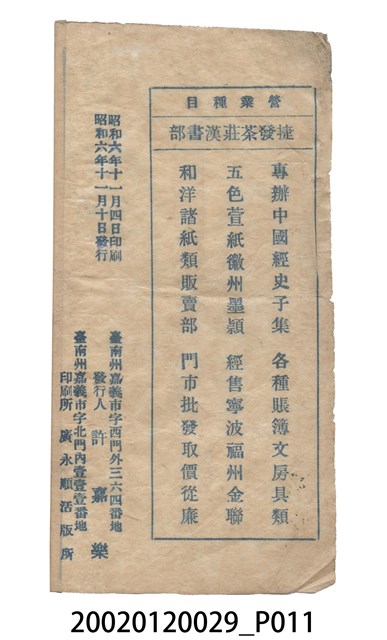 營業種目
捷發茶莊漢書部
專辦中國經史子集　各種賬簿文房具類
五色萱紙徽州墨穎　經售寧波福州金聯
和洋諸紙類販賣部　門市批發取價從廉
昭和六年十一月四日印刷
昭和六年十一月十日發行
臺南州嘉義市字西門外三六四番地
發行人　許嘉樂
臺南州嘉義市字北門內壹壹壹番地
印刷所　廣永順活版所
20020120029_P011